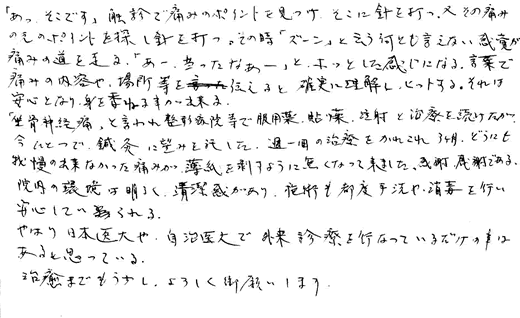 「あっ、そこです」触診で痛みのポイントを見つけ、そこに針を打つ。又その痛み
の元のポイントを探し針を打つ。その時「ズーン」と云う何とも言えない感覚が
痛みの道を走る。「あー、あったなぁー」と、ホッとした感じになる。言葉で
痛みの内容や、場所等を伝えると、確実に理解し、ヒットする。それは
安心となり、身を委ねますか来る。
「坐骨神経痛」と言われ整形病院等で服用薬、貼り薬、注射と治療を続けたが、
今ひとつで、鍼灸に望みを託した。週一回の治療をかれこれ3ヶ月、どうにも
我慢の出来なかった痛みが、薄紙を剥すように無くなって来ました。感謝感謝である。
院内の環境は明るく、清潔感があり、施術も都度手洗や、消毒を行い
安心していられる。
やはり日本医大や、自治医大で外来診療を行なっているだけの事は
あると思っている。
治癒までもう少し、よろしく御願いします。